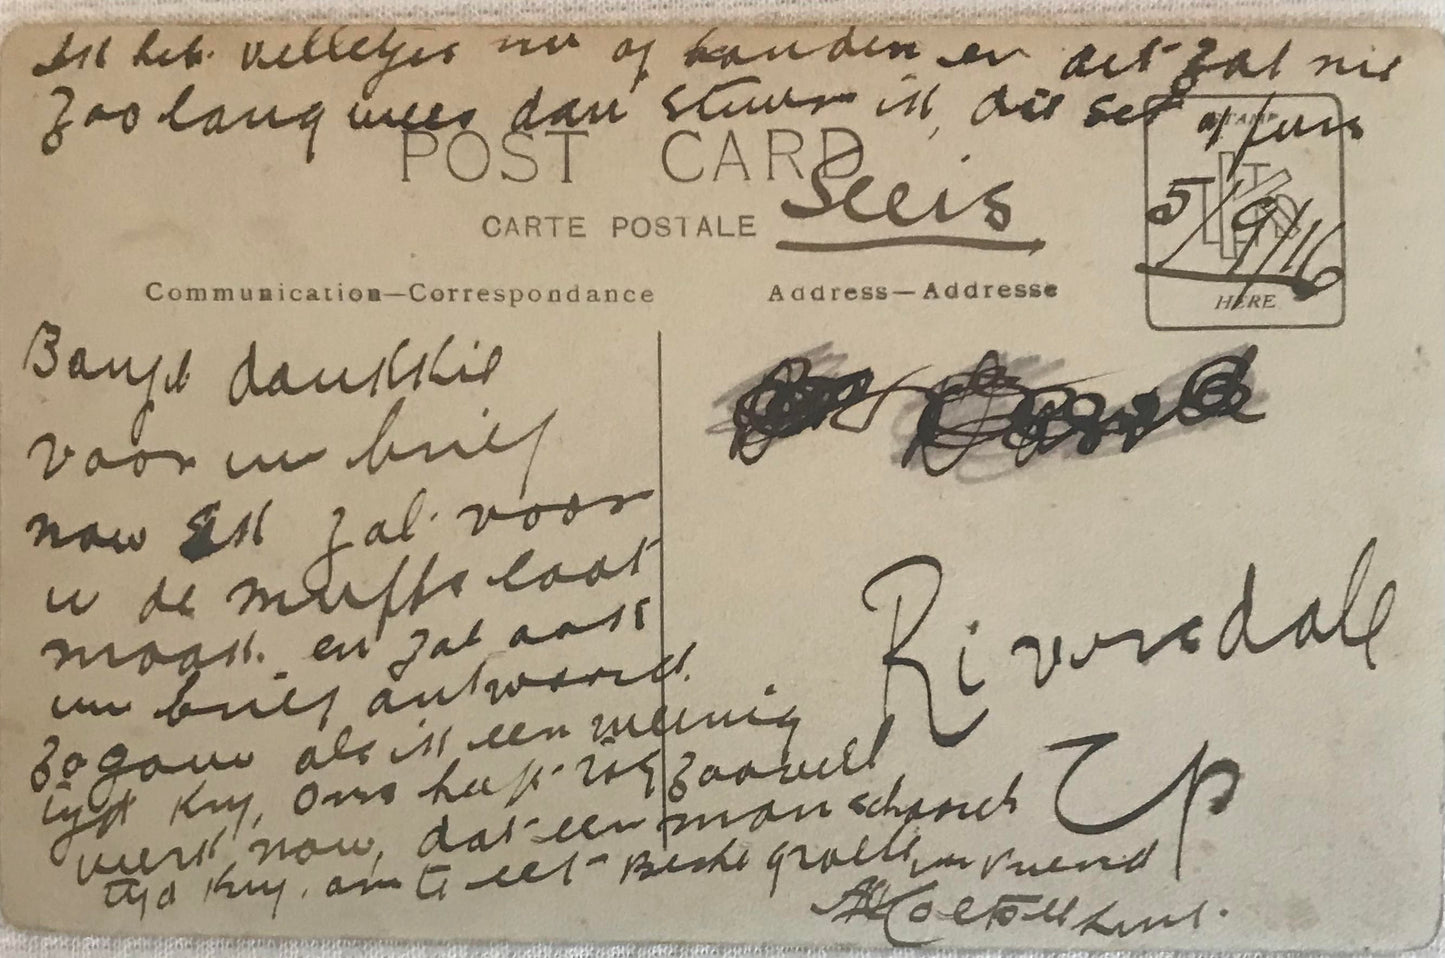 Ik heb velletjes nu op handen en dit zal nie
zoo lang wees dan stuur ik die set of furs
POST CARD
Seeis
STAMP
5/9/16
HERE
CARTE POSTALE
Communication—Correspondance
Address—Addresse
Banje dankkie
voor uw brief
now Ik zal voor
u de muffs laat
maak en zal ook
uw brief antwoord
zo gauw als ik een weinig
tyd kry, Ons heeft zooveel
werk now, dat een man schaars
tyd kry om te eet Beste groete uw vriend
Riversdale
CP